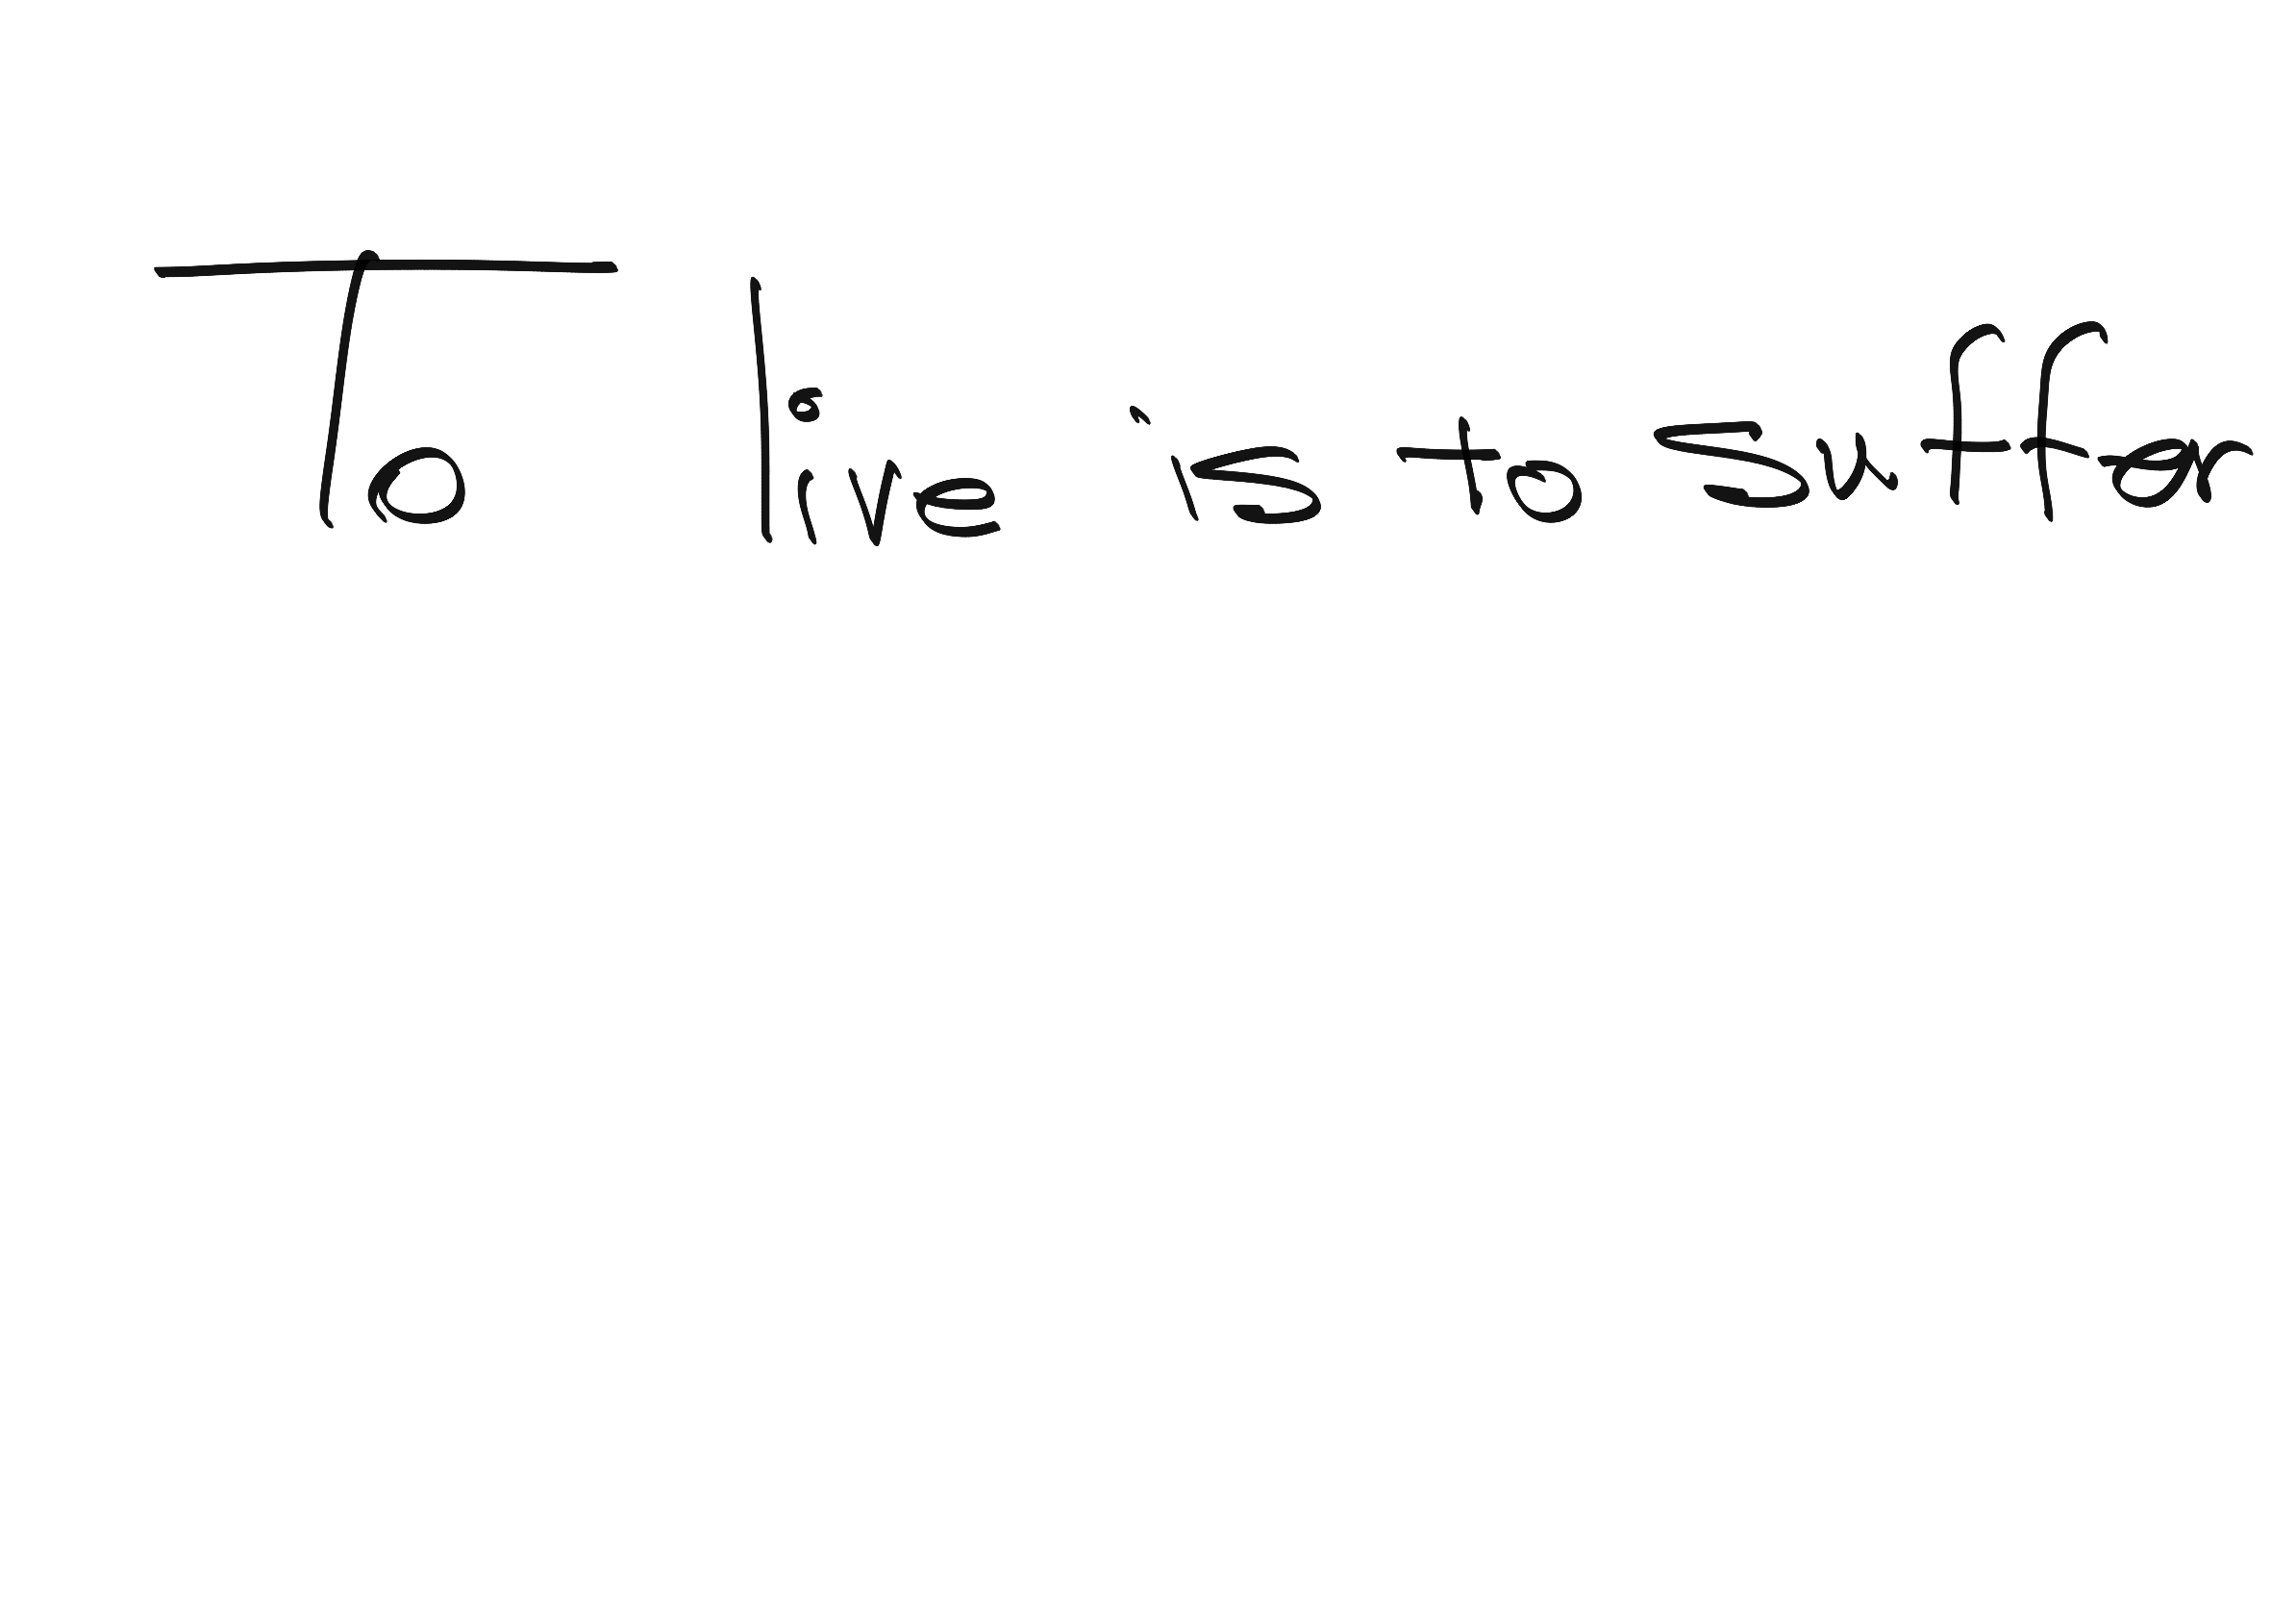 To live is to suffer